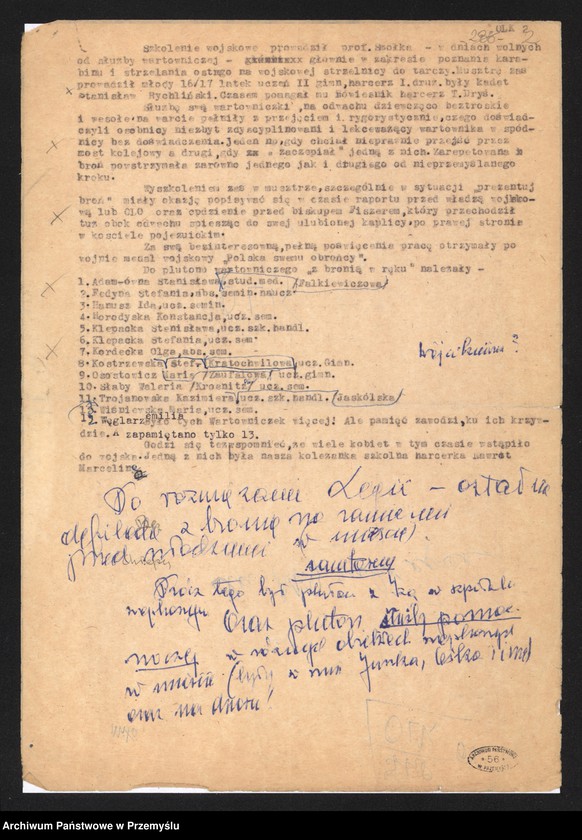 Szkolenie wojskowe prowadził prof. Smołka - w dniach wolnych
od służby wartowniczej - głównie w zakresie poznania kara-
binu i strzelania ostrego na wojskowej strzelnicy do tarczy. Musztrę zaś
prowadził młody 16/17 latek uczeń II gimn, harcerz I.druż. były kadet
Stanisław Rychliński. Czasem pomagał mu Rówieśnik harcerz T.Bryś.
Służbę swą wartowniczki, na odwachu dziewczęco beztroskie
i wesołe- na warcie pełniły z przejęciem i, rygorystycznie, czego doświad-
czyli osobnicy niezbyt zdyscyplinowani i lekceważący wartownika w spód-
nicy bez doświadczenia. Jeden no, gdy chciał nieprawnie przejść przez
most kolejowy a drugi, gdy „ zaczepiał" jedną z nich. Zarepetowana
broń powstrzymała zarówno jednego jak i drugiego od nieprzemyślanego
kroku.
Wyszkoleniem zaś w musztrze, szczególnie w sytuacji „prezentuj
broń" miały okazję popisywać się w czasie raportu przed władzą wojsko-
wą lub CLO oraz przed biskupem Fiszerem, który przechodził
tuż obok odwachu spiesząc do swej ulubionej kaplicy, po prawej stronie
w kościele pojezuickim.
Za swą bezinteresowną, pełną poświęcenia pracę otrzymały po
wojnie medal wojskowy „Polska swemu obrońcy".
Do plutonu wartowniczego „z bronią w ręku" należały -
1. Adam-ówna Stanisława, stud.med. /Falkiewiczowa/
2. Fedyna Stefania, abs. semin. naucz.
3. Hanusz Ida, ucz. semin.
4. Horodyska Konstancja, ucz. sem.
5. Klepacka Stanisława, ucz. szk. handl.
6. Klepacka Stefania, ucz. sem.
7. Kordecka Olga, abs. sem.
8. Kostrzewska Stef. /Kratochwilowa/, ucz. Gimn.
wojskowa ?
9. Maria /Zaufalowa/ ucz. gimn.
10. Słaby Waleria /Kroanitz/ ucz. sem.
11. Trojanowska Kazimiera, ucz. szk. handl. /Jaskólska/
12. Wiśniewska Maria, ucz. sem.
13. Węglarz Emilia
Było tych Wartowniczek więcej! Ale pamięć zawodzi, ku ich krzyw-
dzie. A zapamiętano tylko 13.
Godzi się też wspomnieć, że wiele kobiet w tym czasie wstąpiło
do wojska. Jedną z nich była nasza koleżanka szkolna harcerka Nawrot
Marcelina
Do rozwiązania Legii – ostatnia
defilada z bronią na ramieniu
przed w mieście)
sanitarny
Prócz tego był pluton z w szpitalu
wojskowym Oraz pluton służby pomoc
niczej w różnych obiektach wojskowych
w mieście (były w nim Junka, Leśka i inne)
oraz na dworcu!
ARCHIWUM PAŃSTWOWE
56
W PRZEMYŚLU
Archiwum Państwowe w Przemyślu
www.szukajwarchiwach.gov.pl